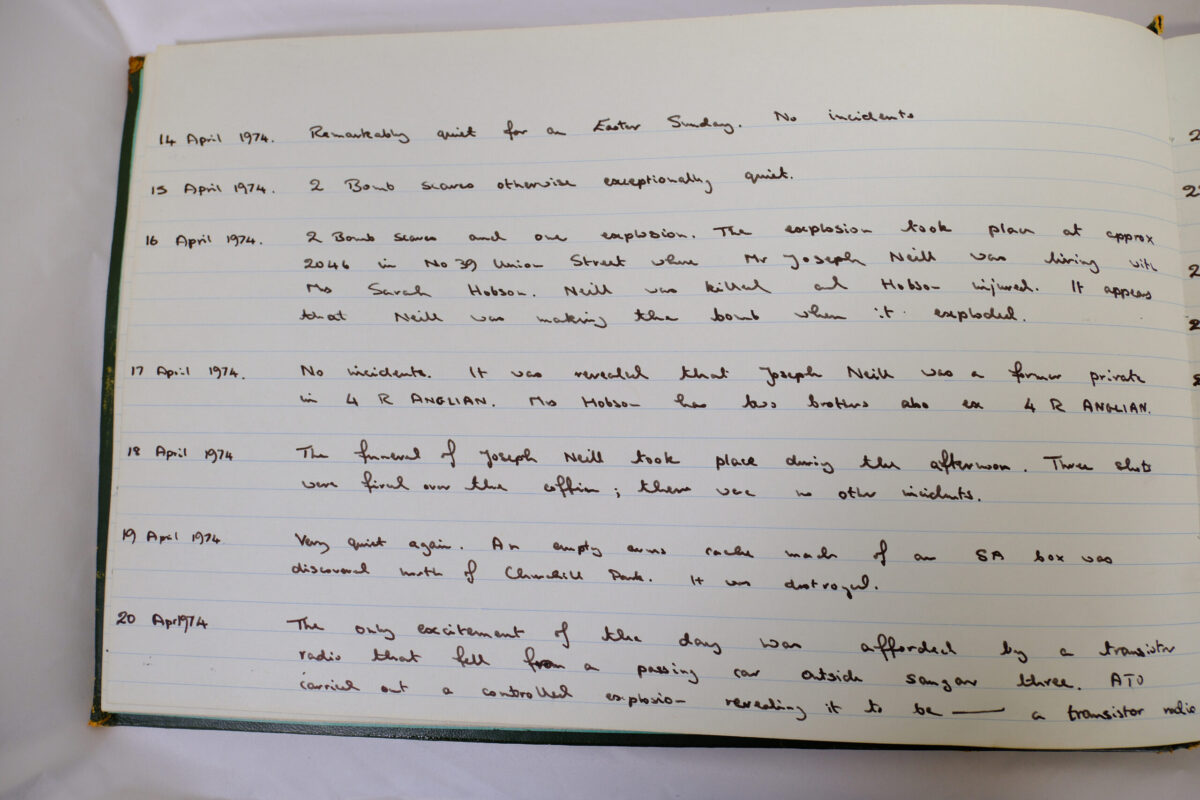 14 April 1974. Remarkably quiet for an Easter Sunday. No incidents
15 April 1974. 2 Bomb scares otherwise exceptionally quiet.
16 April 1974. 2 Bomb scares and one explosion. The explosion took place at approx
2046 in No 39 Union Street where Mr Joseph Neill was living with
Ms Sarah Hobson. Neill was killed and Hobson injured. It appears
that Neill was making the bomb when it exploded.
17 April 1974. No incidents. It was revealed that Joseph Neill was a former private
in 4 R ANGLIAN. Ms Hobson has two brothers also ex 4 R ANGLIAN.
18 April 1974 The funeral of Joseph Neill took place during the afternoon. Three shots
were fired over the coffin; there were no other incidents.
19 April 1974 Very quiet again. An empty arms cache made of an SA box was
discovered north of Churchill Park. It was destroyed.
20 Apr 1974 The only excitement of the day was afforded by a transistor
radio that fell from a passing car outside sangar three. ATO
carried out a controlled explosion revealing it to be — a transistor radio